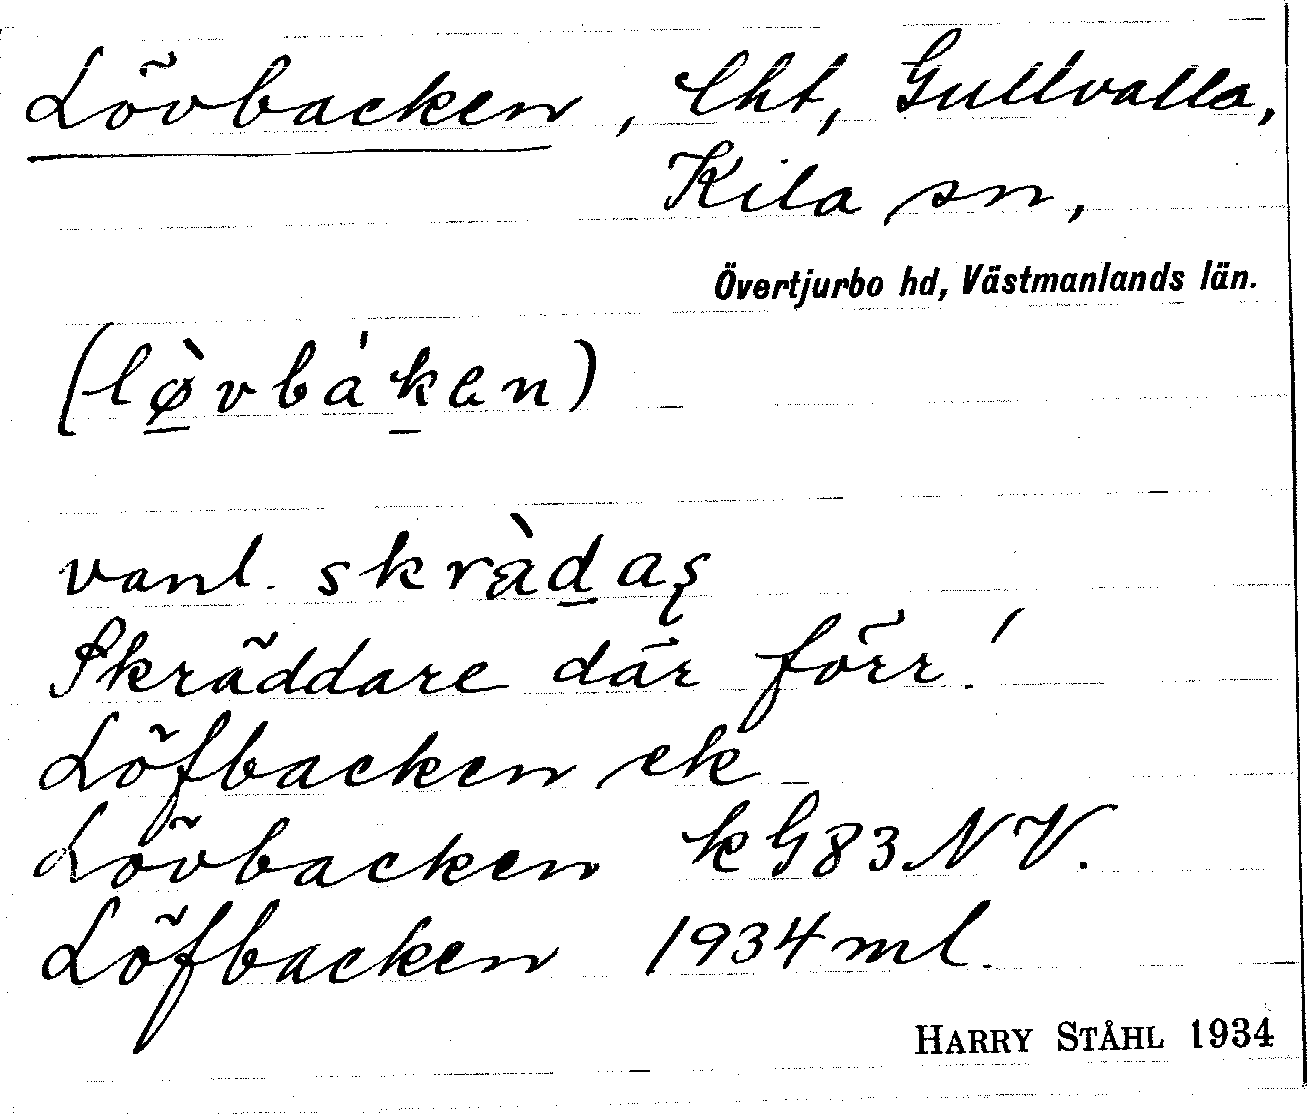 Lövbacken, lht, Gullvalla,
Kila sn,
Övertjurbo hd, Västmanlands län.
(lø̀vbáken)
vanl. skràdaș
Skräddare där förr!
Löfbacken ek
Lövbacken kG83NV.
Löfbacken 1934 ml.
HARRY STÅHL 1934